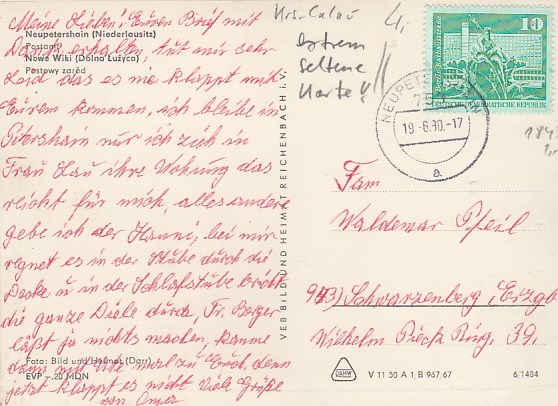 Neupetershain (Niederlausitz)
Postamt
Nowe Wiki (Dolna Łużyca)
Postowy zarěd
Meine Lieben! Euren Brief mit
Dank erhalten tut mir sehr
Leid das es nie klappt mit
Eurem kommen, ich bleibe in
Petershain nur ich zieh in
Frau Lau ihre Wohnung das
reicht für mich, alles andere
gebe ich der Hanni, bei mir
regnet es in der Stube durch die
Decke u in der Schlafstube
die ganze Diele durch, Fr. Berger
läßt ja nichts machen, kanne
dann mit Ute mal zu Euch, denn
jetzt klappt es nicht Viele Grüße
von Omer
Foto: Bild und Heimat (Darr)
EVP –.20 MDN
VEB BILD UND HEIMAT REICHENBACH i. V.
Krs. Calau
extrem
seltene
Karte!!
10
Berlin, Rathausstraße
DEUTSCHE DEMOKRATISCHE REPUBLIK
19.-6.80.-17
a
Fam
Waldemar Pfeil
943) Schwarzenberg/Erzgb
Wilhelm Pieck Ring. 39.
DAHW
V 11 50 A 1 B 967/67
6/1484